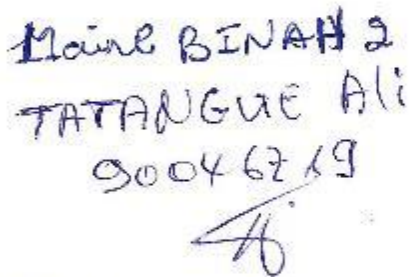 Maire BINAH 2
TATANGUE Ali
90046719